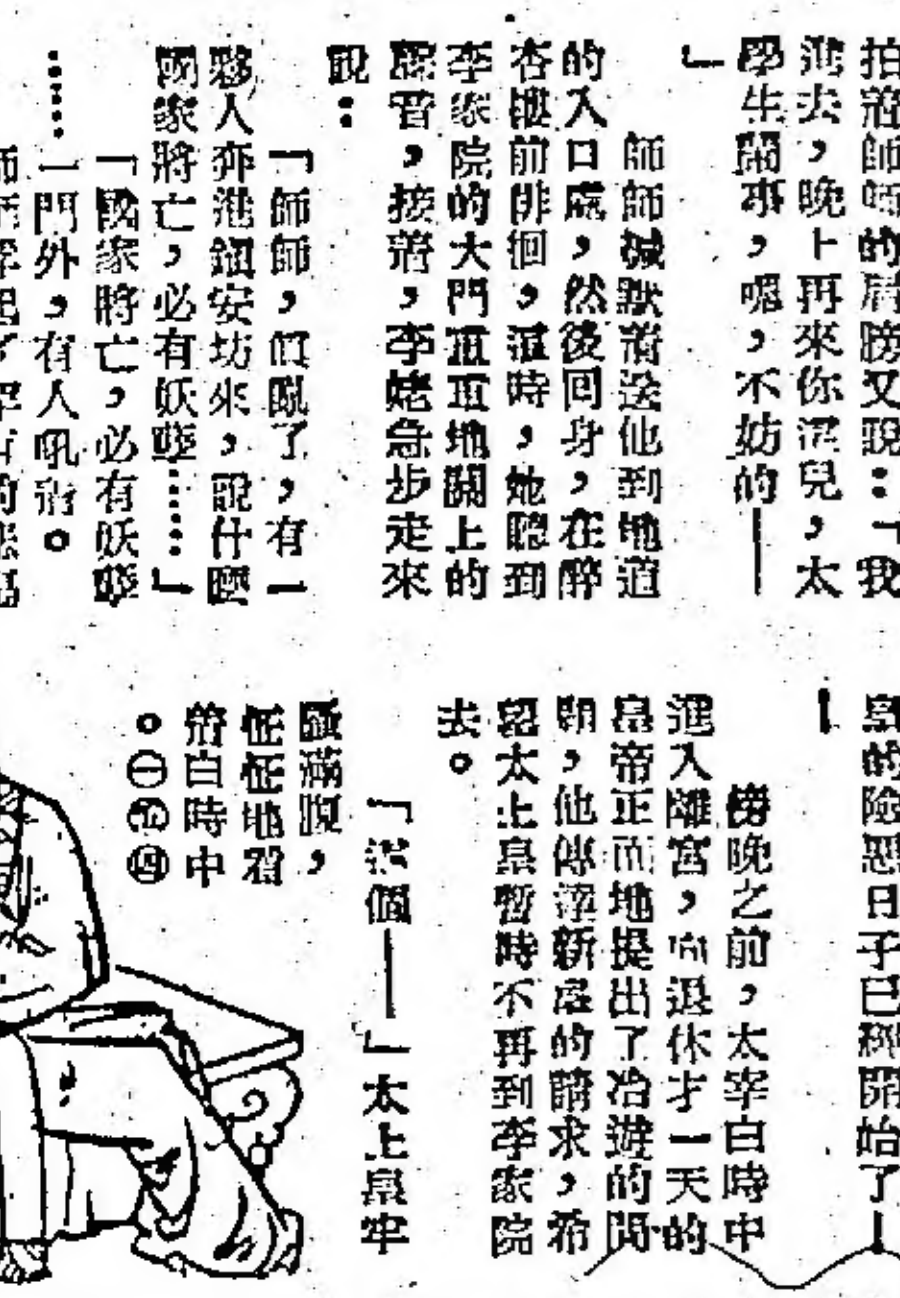 拍着師師的肩膀又說：「我
進去，晚上再來你這兒，太
學生鬧事，嗯，不妨的——
」
師師緘默着送他到地道
的入口處，然後回身，在醉
杏樓前徘徊，這時，她聽到
李家院的大門重重地關上的
聲音，接着，李姥急步走來
說：
「師師，眞亂了，有一
夥人奔進鎭安坊來，說什麼
國家將亡，必有妖孽……」
「國家將亡，必有妖孽
……」門外，有人吼着。
的險惡日子已經開始了—
—
傍晚之前，太宰白時中
進入離宮，向退休才一天的
皇帝正面地提出了冶遊的問
題，他傳達新君的請求，希
望太上皇暫時不再到李家院
去。
「這個——」太上皇牢
騷滿腹，
怔怔地看
着白時中
。㊀㊄㊃